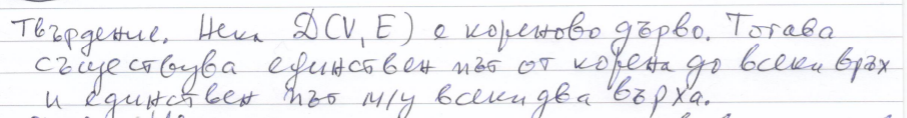 Твърдение. Нека D(V, E) е кореново дърво. Тогава
съществува единствен път от корена до всеки връх
и единствен път м/у всеки два върха.